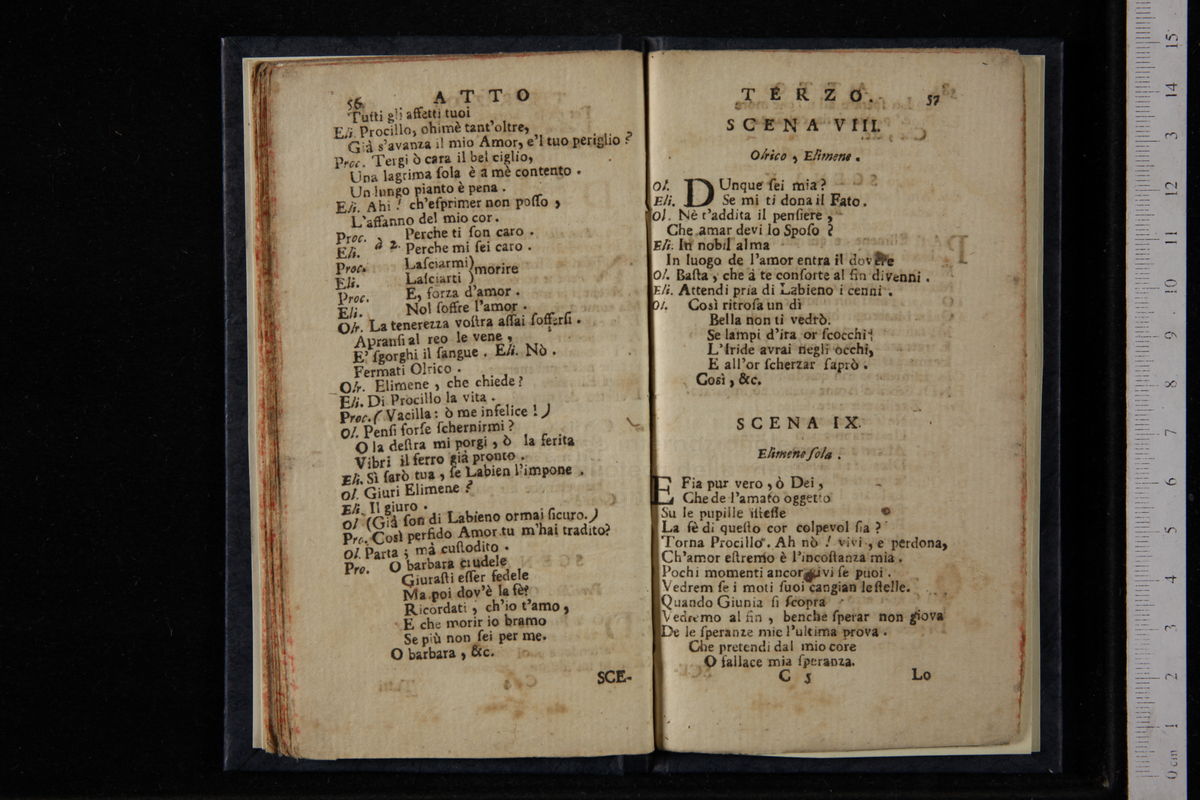 56 ATTO
Tutti gli affetti tuoi
Eli. Procillo, ohimè tant'oltre,
Già s'avanza il mio Amor, e'l tuo periglio ?
Proc. Tergi ò cara il bel ciglio,
Una lagrima ſola è a mè contento .
Un lungo pianto è pena .
Eli. Ahi ! ch'eſprimer non poſſo ,
L'affanno del mio cor.
Proc. Perche ti ſon caro .
Eli. à 2. Perche mi ſei caro .
Proc. Laſciarmi)
Eli. Laſciarti ) morire
Proc. E, forza d'amor .
Eli. Nol ſoffre l'amor .
Olr. La tenerezza voſtra aſſai ſofferſi .
Apranſi al reo le vene ,
E' ſgorghi il ſangue . Eli. Nò .
Fermati Olrico .
Olr. Elimene , che chiede ?
Eli. Di Procillo la vita .
Proc. ( Vacilla : ò me infelice ! )
Ol. Penſi forſe ſchernirmi ?
O la deſtra mi porgi , ò la ferita
Vibri il ferro già pronto .
Eli. Sì farò tua , ſe Labien l'impone .
Ol. Giuri Elimene ?
Eli. Il giuro .
Ol (Già ſon di Labieno ormai ſicuro.)
Pro. Così perfido Amor tu m'hai tradito?
Ol. Parta ; mà cuſtodito .
Pro. O barbara crudele
Giuraſti eſſer fedele
Ma poi dov'è la fè?
Ricordati , ch'io t'amo ,
E che morir io bramo
Se più non ſei per me.
O barbara , &c.
SCE-
TERZO. 57
SCENA VIII.
Olrico , Elimene .
Ol. DUnque ſei mia ?
Eli. Se mi ti dona il Fato .
Ol. Nè t'addita il penſiere ,
Che amar devi lo Spoſo ?
Eli. In nobil alma
In luogo de l'amor entra il dovere
Ol. Baſta , che à te conſorte al fin divenni .
Eli. Attendi pria di Labieno i cenni .
Ol. Così ritroſa un dì
Bella non ti vedrò.
Se lampi d'ira or ſcocchi
L'Iride avrai negli occhi,
E all'or ſcherzar ſaprò .
Così , &c.
SCENA IX.
Elimene ſola .
E Fia pur vero , ò Dei ,
Che de l'amato oggetto
Su le pupille iſteſſe
La fè di queſto cor colpevol ſia ?
Torna Procillo. Ah nò ! vivi , e perdona,
Ch'amor eſtremo è l'incoſtanza mia .
Pochi momenti ancor vivi ſe puoi .
Vedrem ſe i moti ſuoi cangian le ſtelle.
Quando Giunia ſi ſcopra
Vedremo al fin , benche ſperar non giova
De le ſperanze mie l'ultima prova .
Che pretendi dal mio core
O fallace mia ſperanza.
C 5 Lo
0 cm 1 2 3 4 5 6 7 8 9 10 11 12 13 14 15